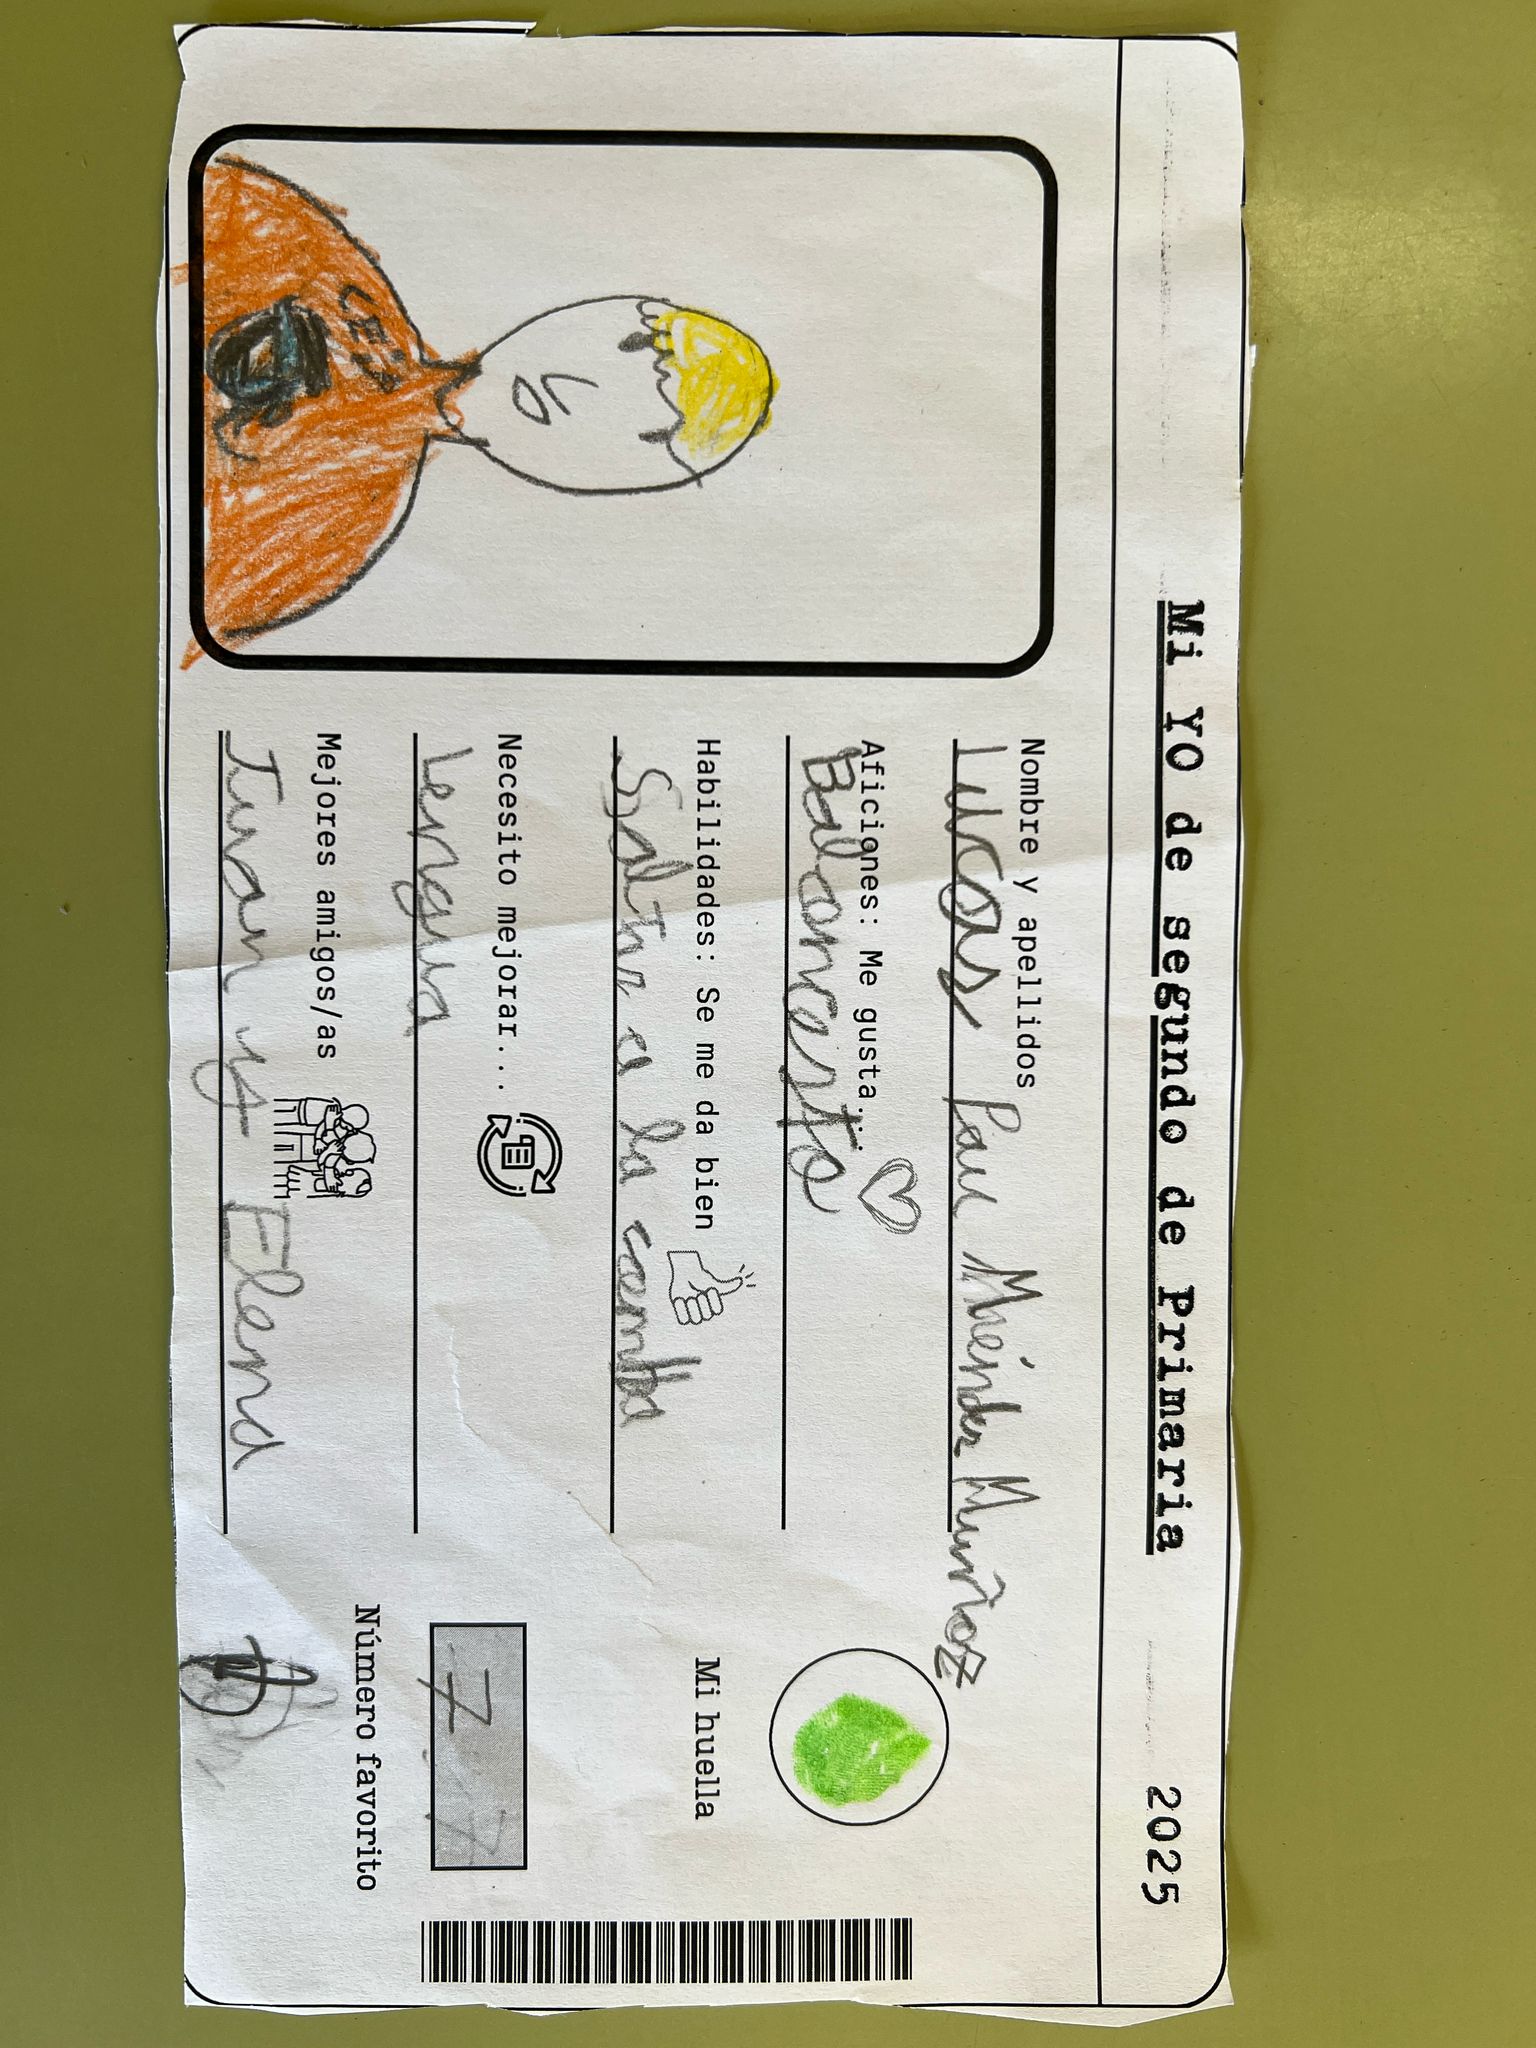 Mi YO de segundo de Primaria 2025
Nombre y apellidos
Lucas Pau Méndez Muñoz
Aficiones: Me gusta...
Baloncesto
Habilidades: Se me da bien
Saltar a la comba
Necesito mejorar...
Lengua
Mejores amigos/as
Juan y Elena
Mi huella
7
Número favorito